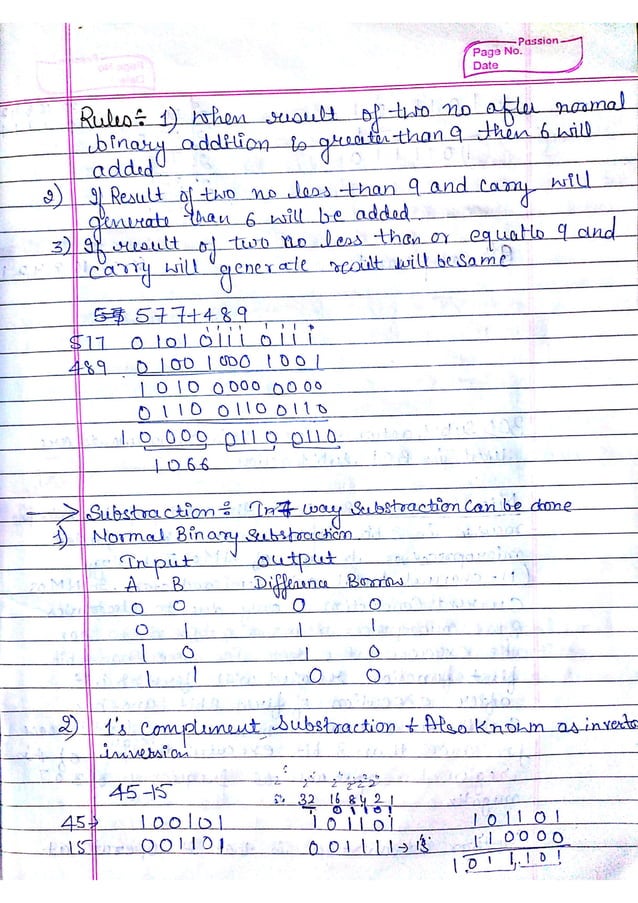 Passion
Page No.
Date
Rules÷ 1) When result of two no after normal
binary addition is greater than 9 then 6 will
added
2) If Result of two no less than 9 and carry will
generate than 6 will be added.
3) If result of two no less than or equalto 9 and
carry will generate result will be same
577+489
577 0101 0111 0111
489 0100 1000 1001
1010 0000 0000
0110 0110 0110
10000 0110 0110
1066
→ Substraction÷ In 7 way Substraction can be done
1) Normal Binary Substraction
Input output
A B Difference Borrow
0 0 0 0
0 1 1 1
1 0 1 0
1 1 0 0
2) 1's complement Substraction + Also known as
inversion
45-15 32 16 8 4 2 1
45→ 100101 101101 101101
15 001101 001111→15 110000
1011101